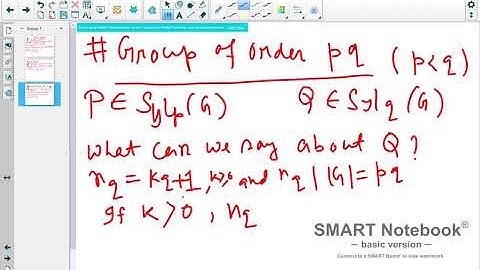 # Group of order pq (p<q)
P ∈ Sylp(G) Q ∈ Sylq(G)
What can we say about Q?
nq = kq+1, k≥0 and nq | |G| = pq
If k > 0, nq
SMART Notebook®
— basic version —
Connect to a SMART Board® to hide watermark